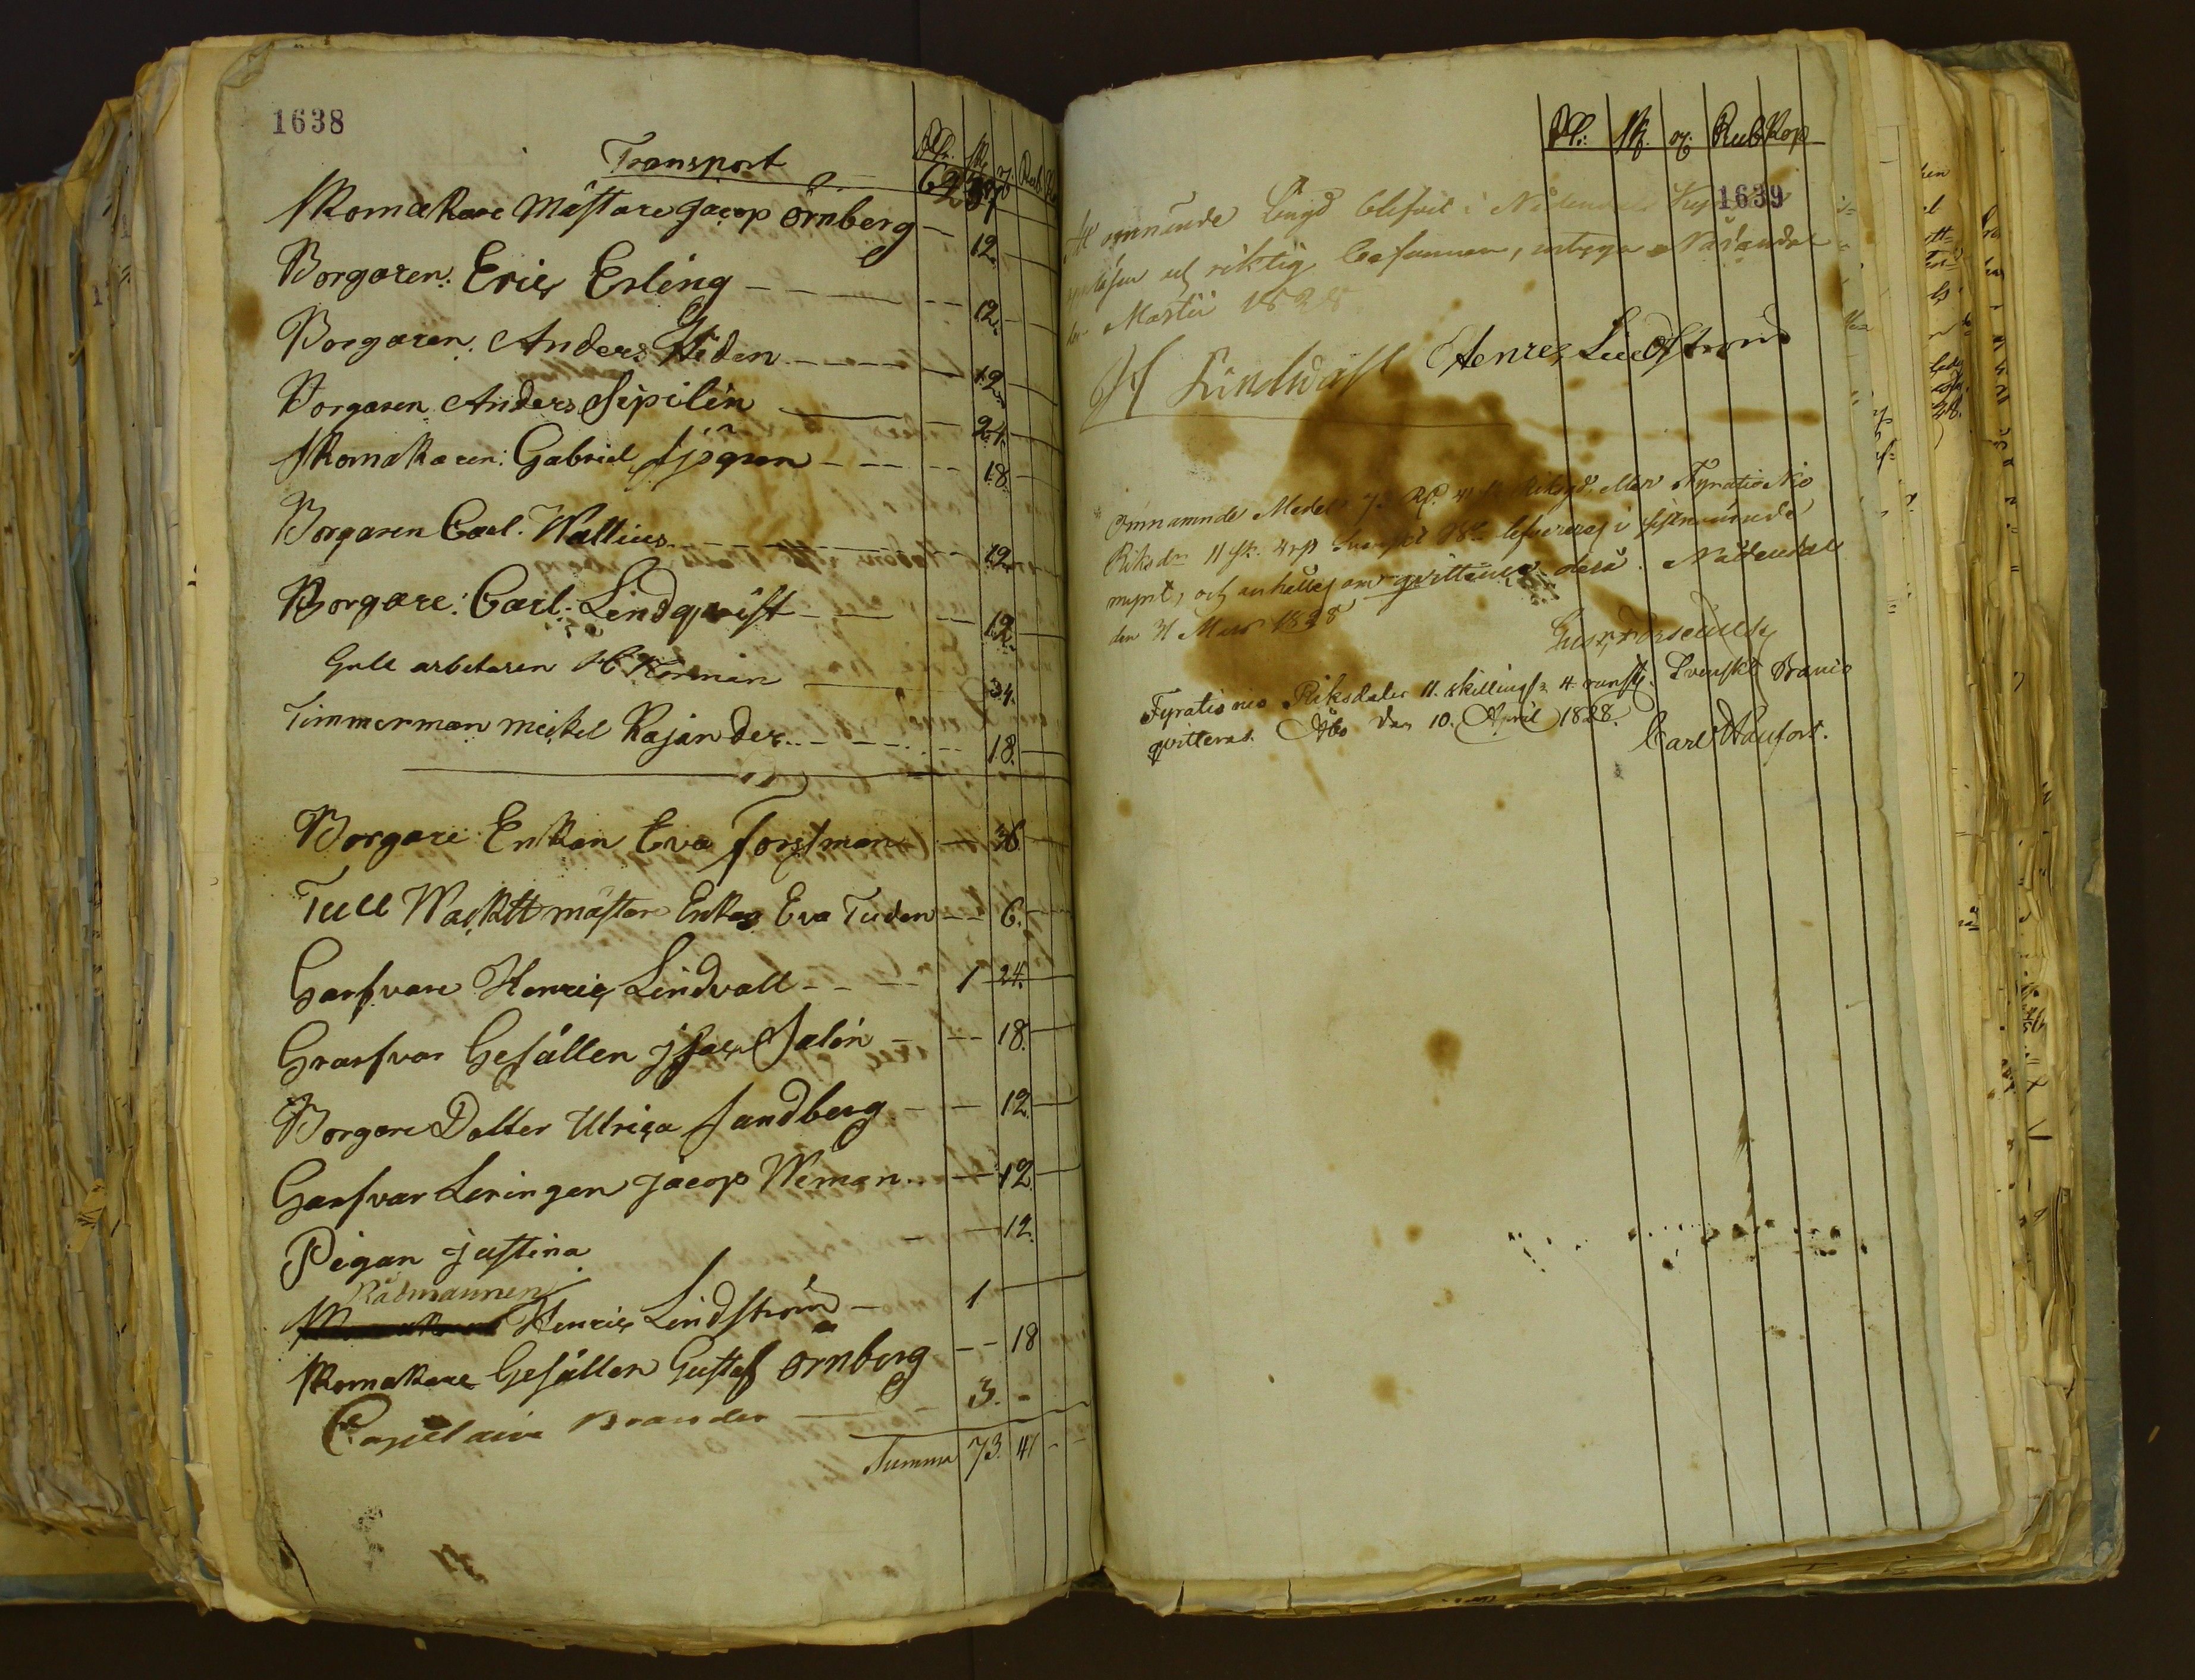 1638
Rdr. sk r. Rub. K
Transport 62 37
Skomakare Mästare Jacop Örnberg 12.
Borgaren: Eric Erling 12.
Borgaren: Anders Heden 12.
Borgaren Anders Sipilin 24.
Skomakaren: Gabriel Sjögren 18.
Borgaren Carl. Wallius 12.
Borgare: Carl: Lindqvist 12.
Gull arbetaren 24.
Timmerman Mickel Kajander 18.
Borgare Enkan Eva Forsman 36
Tull Wacktmästare Enkan Eva Tuden 6.
Garfvare Henric Lindvall 1 24.
Grarfvar Gesällen Salin 18.
Borgare Dotter Ulrica Sandberg 12.
Garfvar Leringen Jacop Weman 12
Pigan Justina 12.
Rådmannen
Henric Lindström 1
Skomakare Gesällen Gustaf Örnberg 18
Capellain Brander 3. -
Summa 73. 41
Rd: sk. r. Rub Kop
1639
At omnämnde Längd blifvit i Nådendals
och riktig befunnen, intyga Nådendal
den Martii 1828
H Lindwall Henric Lindström
Omnämnde Medel 73 Rd. 41 sk Riksgd. eller Fyratio Nio
Riksdr 11 sk. 4 rs levereras i sistnämnde
mynt, och anhålles om qvittence derå. Nådendal
den 31 Mars 1828
Fyratio nio Riksdaler 11. skilling 4 runst. Svenskt Banco
qvitteras. Åbo den 10. April 1828.
Carl